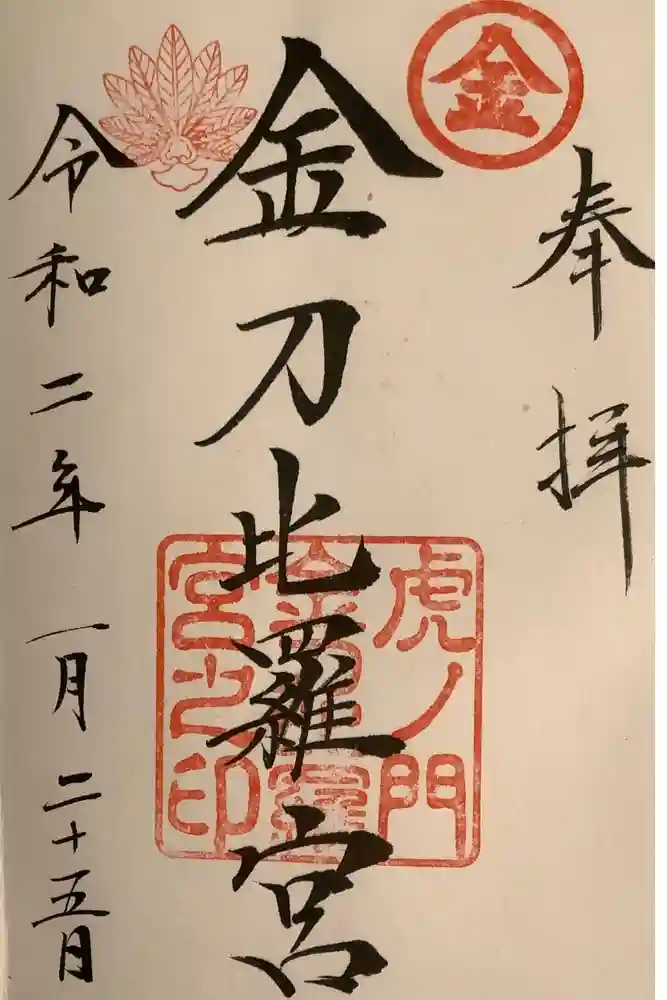 金
奉拝
金刀比羅宮
虎ノ門
金刀比羅
宮之印
令和二年一月二十五月